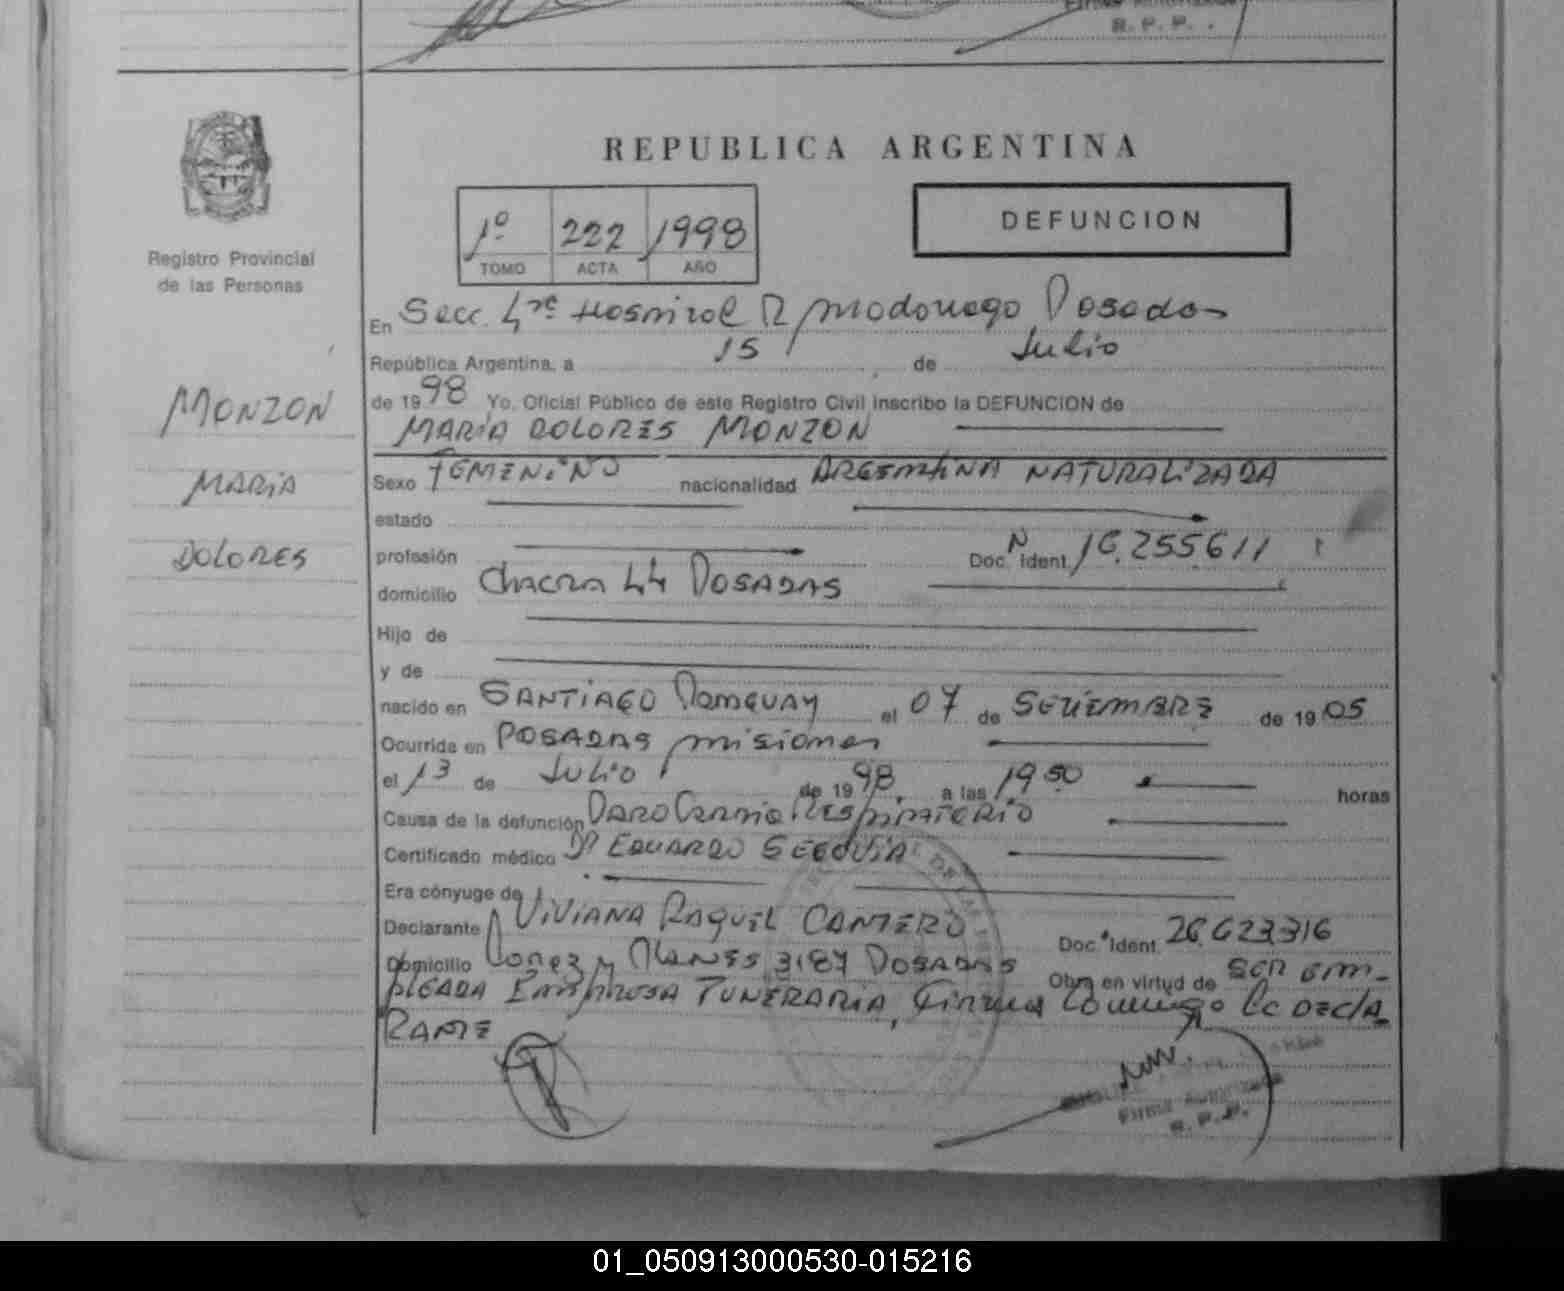 R. P. P.
REPUBLICA ARGENTINA
1º 222 1998
TOMO ACTA AÑO
DEFUNCION
Registro Provincial
de las Personas
MONZON
MARIA
DOLORES
En Secc. 4ta Hospital R Madariaga Posadas
República Argentina, a 15 de Julio
de 1998 Yo, Oficial Público de este Registro Civil inscribo la DEFUNCION de
MARIA DOLORES MONZON
Sexo FEMENINO nacionalidad ARGENTINA NATURALIZADA
estado
profesión Doc. N Ident. 16.255611
domicilio Chacra 44 POSADAS
Hijo de
y de
nacido en SANTIAGO Paraguay el 07 de SETIEMBRE de 1905
Ocurrida en POSADAS misiones
el 13 de Julio de 1998, a las 19.50 horas
Causa de la defunción Paro Cardio RESPIRATORIO
Certificado médico Dr EDUARDO SEGOVIA
Era cónyuge de
Declarante VIVIANA RAQUEL CANTERO Doc. Ident. 26.623316
Domicilio Lopez y Planes 3187 POSADAS Obra en virtud de SER em-
pleada Empresa FUNERARIA, firma conmigo la DECLA
RANTE
Firma Autorizada
R. P. P.
01_050913000530-015216